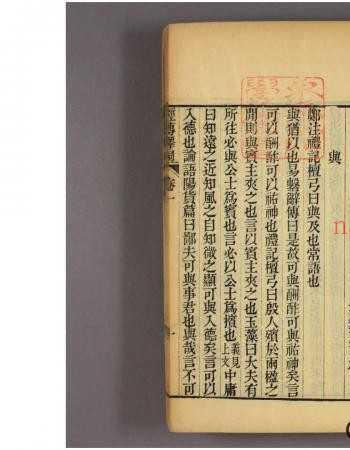 與
鄭注禮記檀弓曰與及也常語也
與猶以也易繫辭傳曰是故可與酬酢可與祐神矣言
可以酬酢可以祐神也禮記檀弓曰殷人殯於兩楹之
閒則與賓主夾之也言以賓主夾之也玉藻曰大夫有
所往必與公士為賓也言必以公士為擯也義見上文中庸
曰知遠之近知風之自知微之顯可與入德矣言可以
入德也論語陽貨篇曰鄙夫可與事君也與哉言不可
經傳釋詞 卷一 一
n